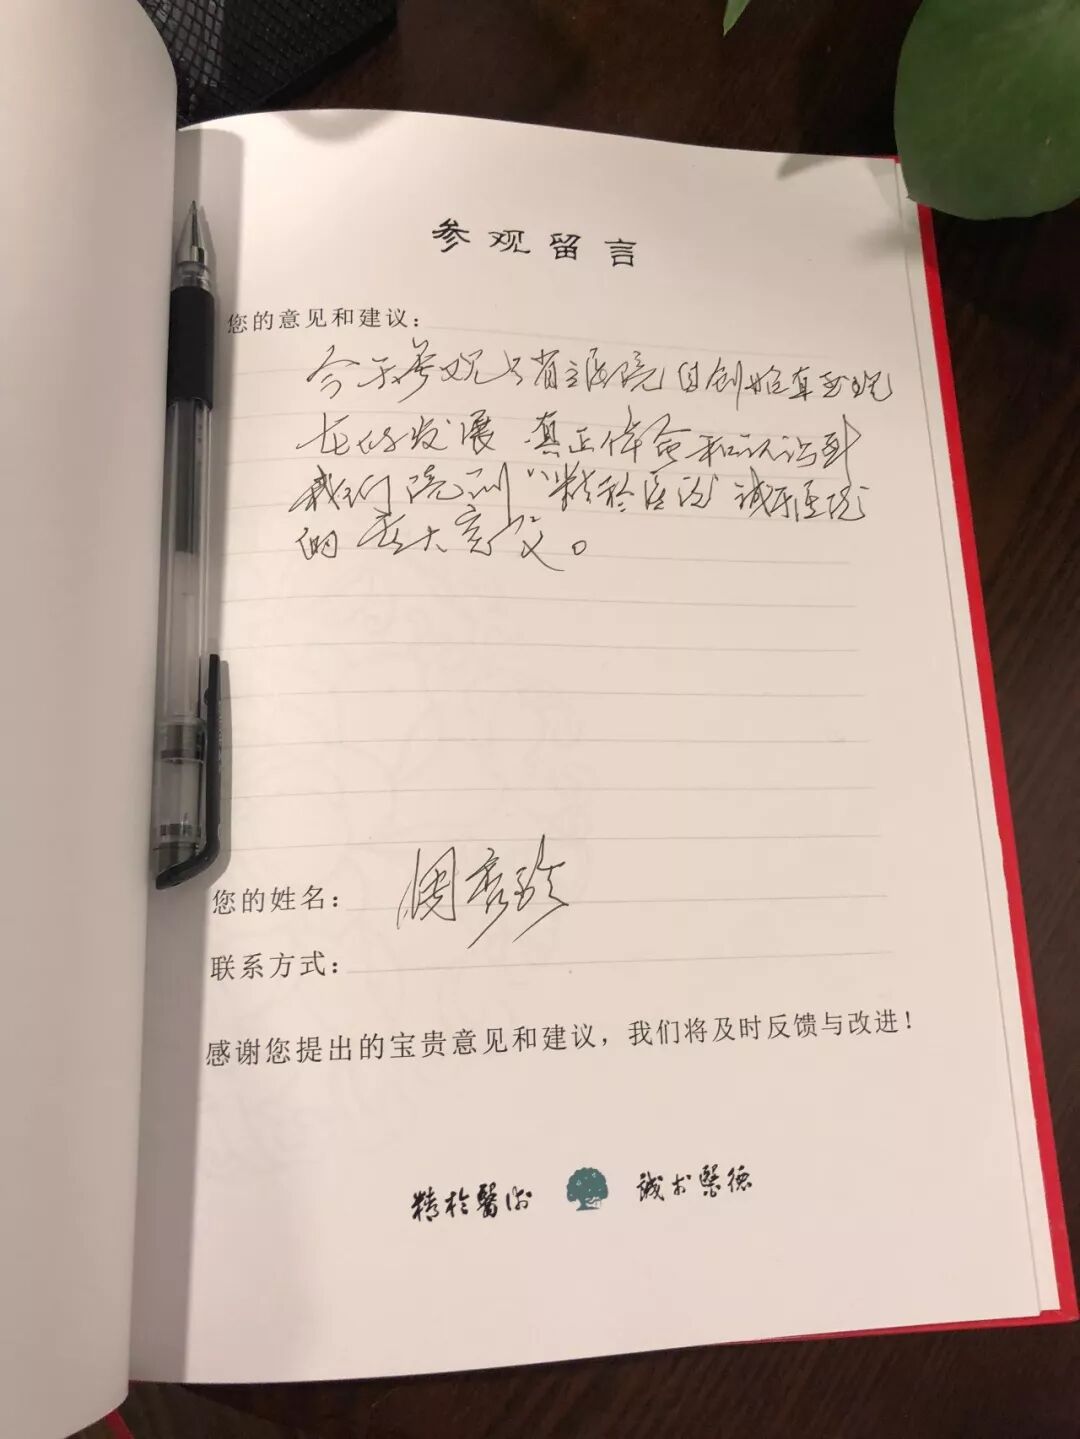 参观留言
您的意见和建议：
今天参观了省立医院自创始直至现
在的发展 真正体会和认识到
我们院训"精于医术 诚于医德"
的重大意义。
您的姓名：周秀珍
联系方式：
感谢您提出的宝贵意见和建议，我们将及时反馈与改进！
精於醫術 誠於醫德